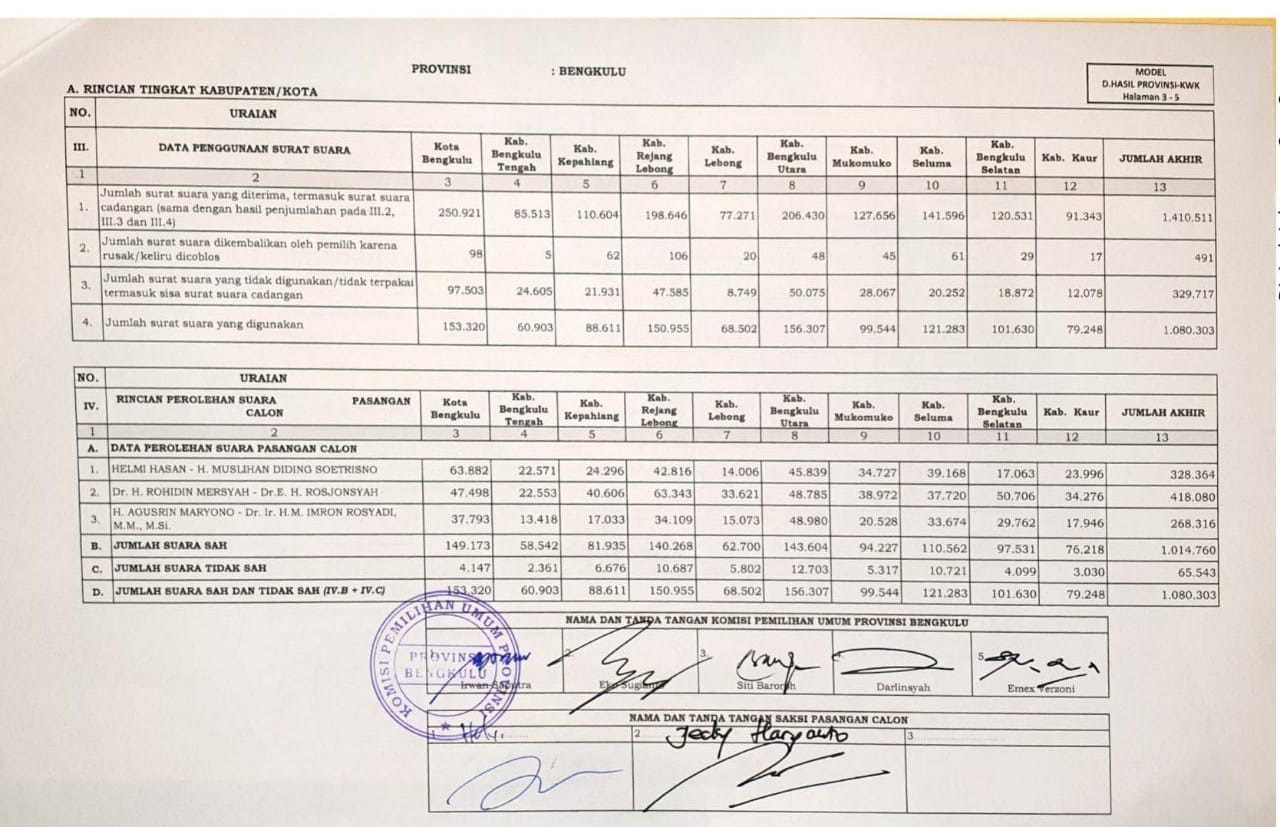 PROVINSI : BENGKULU
MODEL
D.HASIL PROVINSI-KWK
Halaman 3 - 5
A. RINCIAN TINGKAT KABUPATEN/KOTA
NO. URAIAN
III. DATA PENGGUNAAN SURAT SUARA Kota Bengkulu Kab. Bengkulu Tengah Kab. Kepahiang Kab. Rejang Lebong Kab. Lebong Kab. Bengkulu Utara Kab. Mukomuko Kab. Seluma Kab. Bengkulu Selatan Kab. Kaur JUMLAH AKHIR
1 2 3 4 5 6 7 8 9 10 11 12 13
1. Jumlah surat suara yang diterima, termasuk surat suara cadangan (sama dengan hasil penjumlahan pada III.2, III.3 dan III.4) 250.921 85.513 110.604 198.646 77.271 206.430 127.656 141.596 120.531 91.343 1.410.511
2. Jumlah surat suara dikembalikan oleh pemilih karena rusak/keliru dicoblos 98 5 62 106 20 48 45 61 29 17 491
3. Jumlah surat suara yang tidak digunakan/tidak terpakai termasuk sisa surat suara cadangan 97.503 24.605 21.931 47.585 8.749 50.075 28.067 20.252 18.872 12.078 329.717
4. Jumlah surat suara yang digunakan 153.320 60.903 88.611 150.955 68.502 156.307 99.544 121.283 101.630 79.248 1.080.303
NO. URAIAN
IV. RINCIAN PEROLEHAN SUARA PASANGAN CALON Kota Bengkulu Kab. Bengkulu Tengah Kab. Kepahiang Kab. Rejang Lebong Kab. Lebong Kab. Bengkulu Utara Kab. Mukomuko Kab. Seluma Kab. Bengkulu Selatan Kab. Kaur JUMLAH AKHIR
1 2 3 4 5 6 7 8 9 10 11 12 13
A. DATA PEROLEHAN SUARA PASANGAN CALON
1. HELMI HASAN - H. MUSLIHAN DIDING SOETRISNO 63.882 22.571 24.296 42.816 14.006 45.839 34.727 39.168 17.063 23.996 328.364
2. Dr. H. ROHIDIN MERSYAH - Dr.E. H. ROSJONSYAH 47.498 22.553 40.606 63.343 33.621 48.785 38.972 37.720 50.706 34.276 418.080
3. H. AGUSRIN MARYONO - Dr. Ir. H.M. IMRON ROSYADI, M.M., M.Si. 37.793 13.418 17.033 34.109 15.073 48.980 20.528 33.674 29.762 17.946 268.316
B. JUMLAH SUARA SAH 149.173 58.542 81.935 140.268 62.700 143.604 94.227 110.562 97.531 76.218 1.014.760
C. JUMLAH SUARA TIDAK SAH 4.147 2.361 6.676 10.687 5.802 12.703 5.317 10.721 4.099 3.030 65.543
D. JUMLAH SUARA SAH DAN TIDAK SAH (IV.B + IV.C) 153.320 60.903 88.611 150.955 68.502 156.307 99.544 121.283 101.630 79.248 1.080.303
NAMA DAN TANDA TANGAN KOMISI PEMILIHAN UMUM PROVINSI BENGKULU
KOMISI PEMILIHAN UMUM PROVINSI
PROVINSI
BENGKULU
2. 3. 5.
Irwan Saputra Eko Sugianto Siti Baroroh Darlinsyah Emex Verzoni
NAMA DAN TANDA TANGAN SAKSI PASANGAN CALON
2 Jecky Haryanto 3